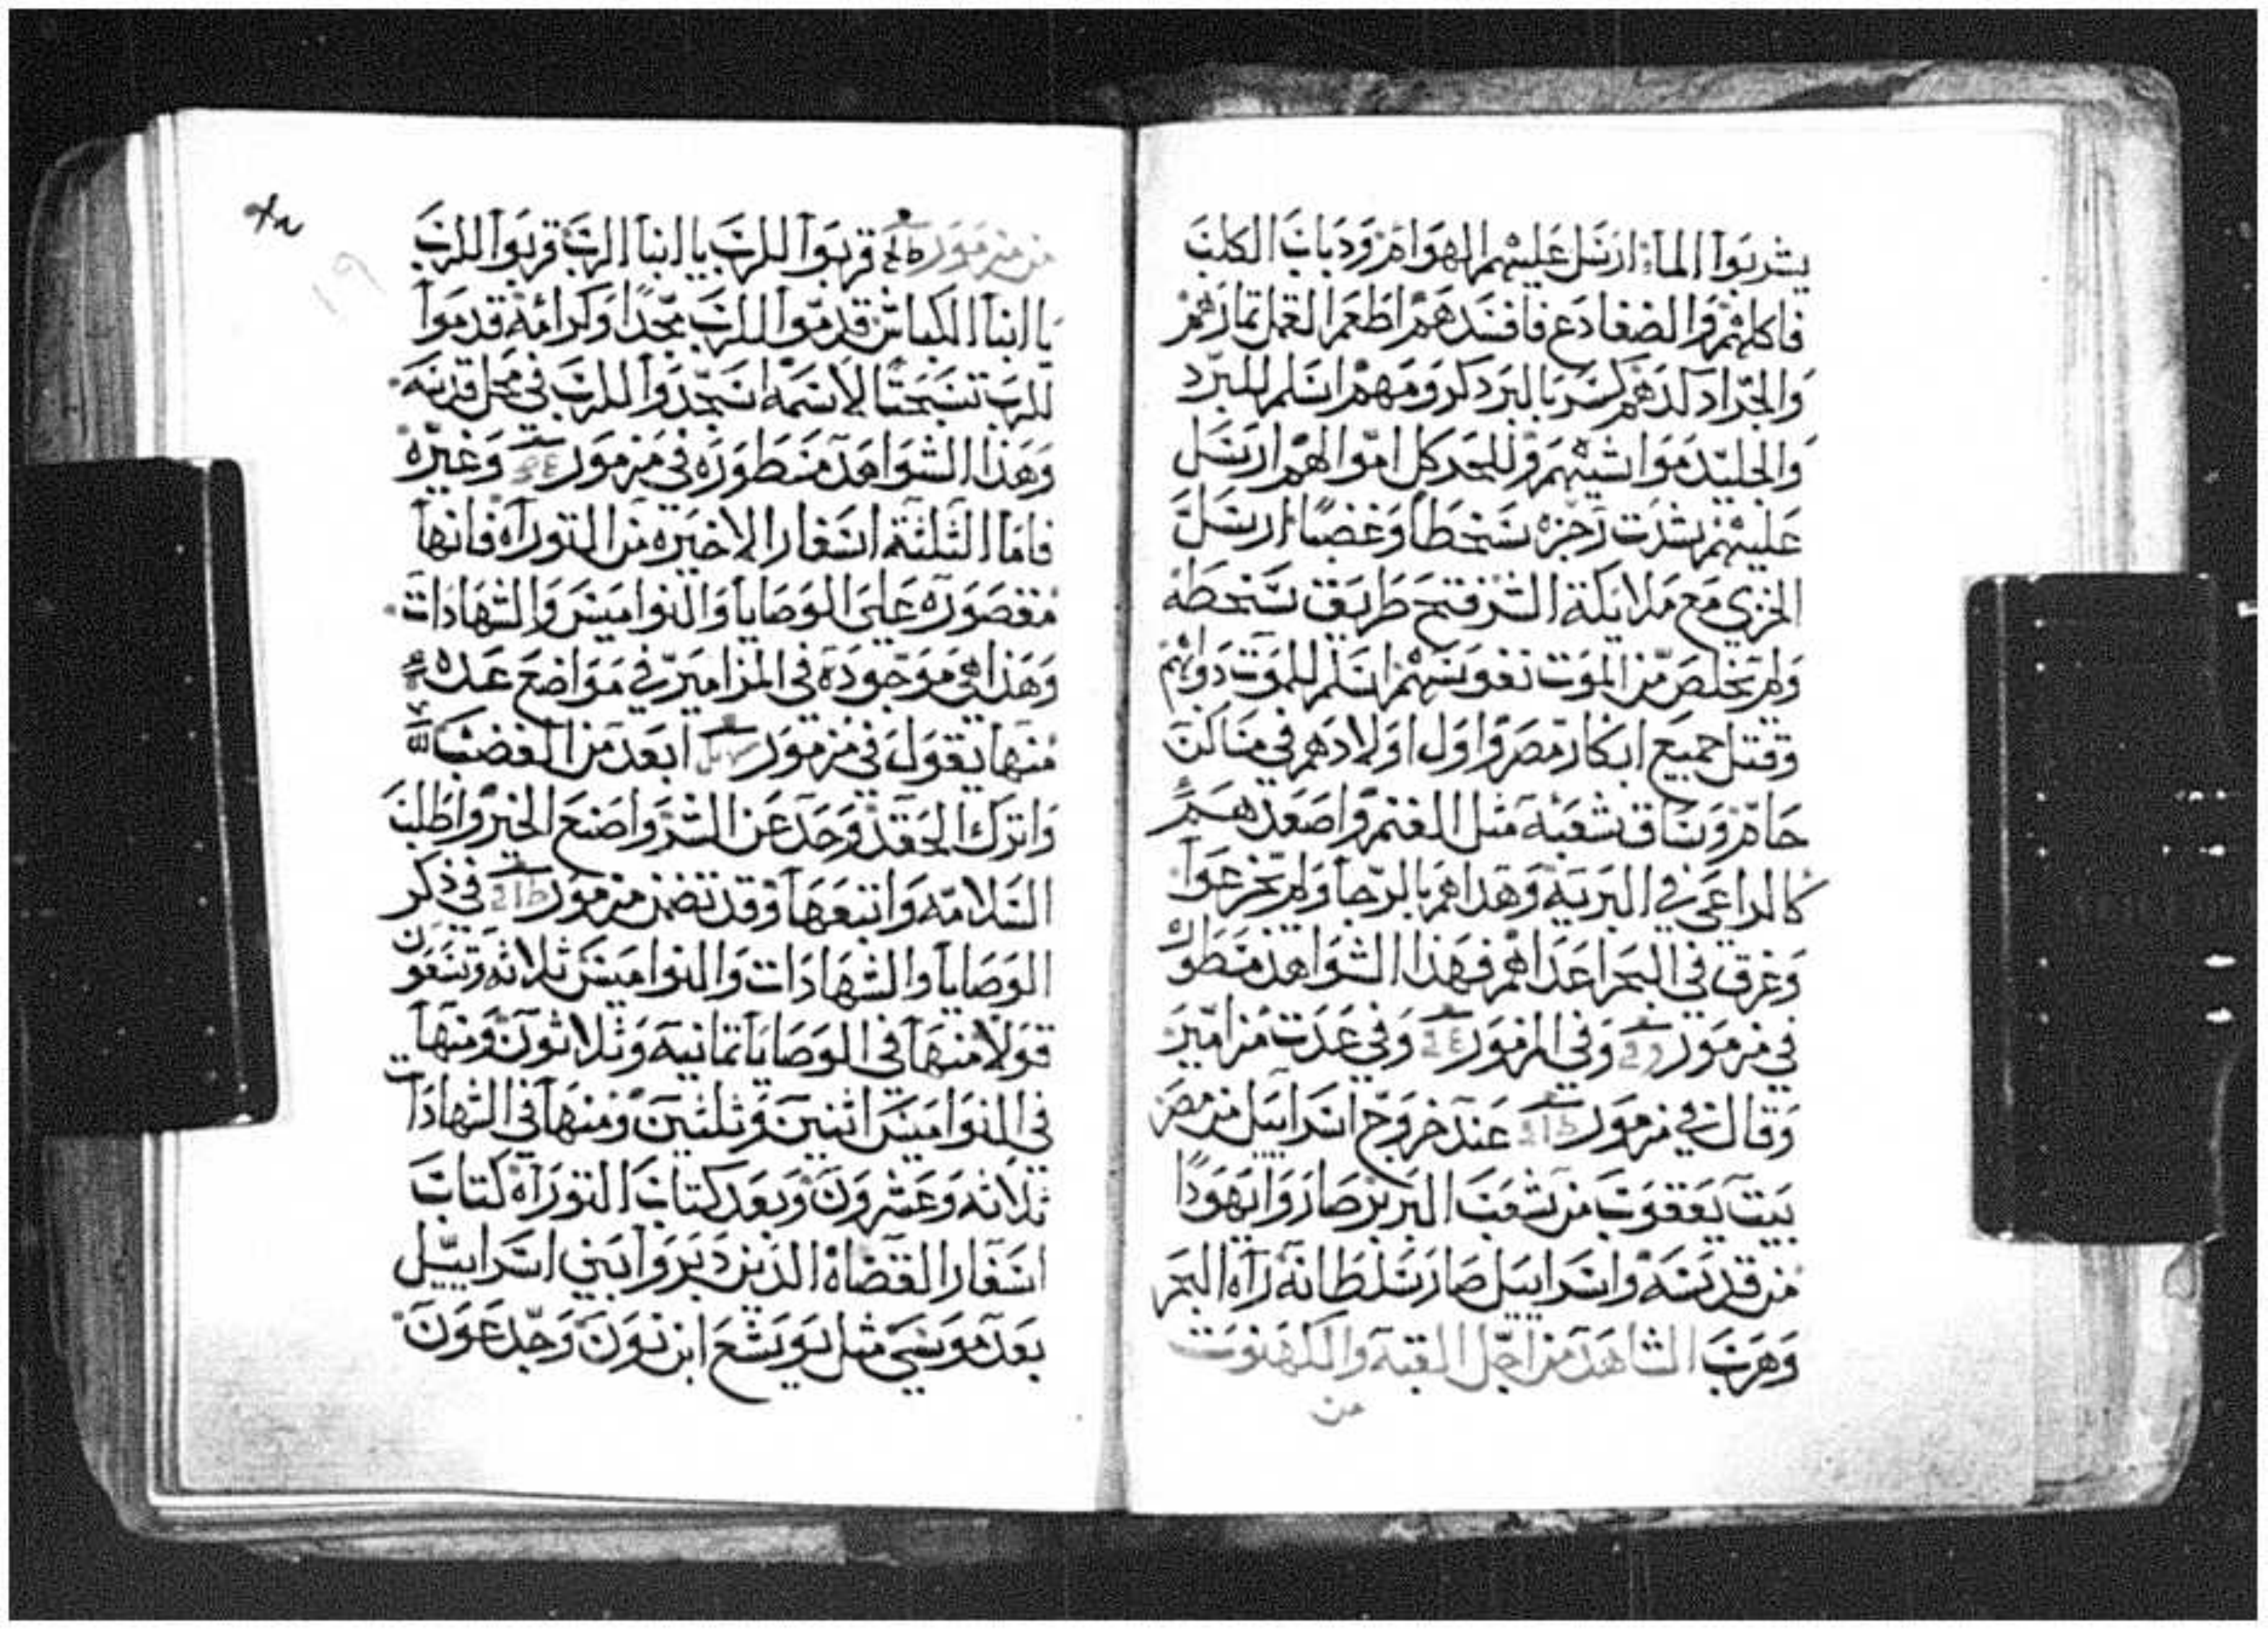 يشربوا الماء ارسل عليهم الهوام ودباب الكلب
فاكلهم والضفادع فافسدهم اطعم القمل ثمارهم
والجراد كدهم كسر بالبرد كرومهم اسلم للبرد
والجليد مواشيهم وللحد كل اموالهم ارسل
عليهم شدت رجزه سخطا وغضبا ارسل
الخزي مع ملايكة الشر فتح طريق سخطه
ولم يخلص من الموت نفوسهم اسلم للموت دوابهم
وقتل جميع ابكار مصر واول اولادهم في مساكن
حام وساق شعبه مثل الغنم واصعدهم
كالراعي في البريه وهداهم بالرجا ولم يجزعوا
وغرق في البحر اعداهم فهذا الشواهد مسطوره
في مزمور وفي المزمور وفي عدت مزامير
وقال في مزمور عند خروج اسراييل من مصر
بيت يعقوب من شعب البربر صاروا يهودا
من قدسه واسراييل صار سلطانه راه البحر
وهرب الشاهد من اجل القبه والكهنوت
من
من مزمور قربوا للرب يا ابنا الرب قربوا للرب
يا ابنا الكباش قدموا للرب مجدا وكرامه قدموا
للرب تسبحتا لاسمه اسجدوا للرب في محل قدسه
وهذا الشواهد مسطوره في مزمور وغيره
فاما الثلثة اسفار الاخيره من التوراه فانها
مقصوره على الوصايا والنواميس والشهادات
وهذا هي موجوده في المزامير في مواضع عده
منها يقول في مزمور ابعد من الغضب
واترك الحقد وحد عن الشر واصنع الخير واطلب
السلامه واتبعها وقد تضمن مزمور في ذكر
الوصايا والشهادات والنواميس ثلاثه وتسعون
قولا منها في الوصايا ثمانيه وثلاثون ومنها
في النواميس اثنين وثلثين ومنها في الشهادات
ثلاثه وعشرون وبعد كتاب التوراه كتاب
اسفار القضاه الذين دبروا بني اسراييل
بعد موسي مثل يويشع ابن نون وجدعون